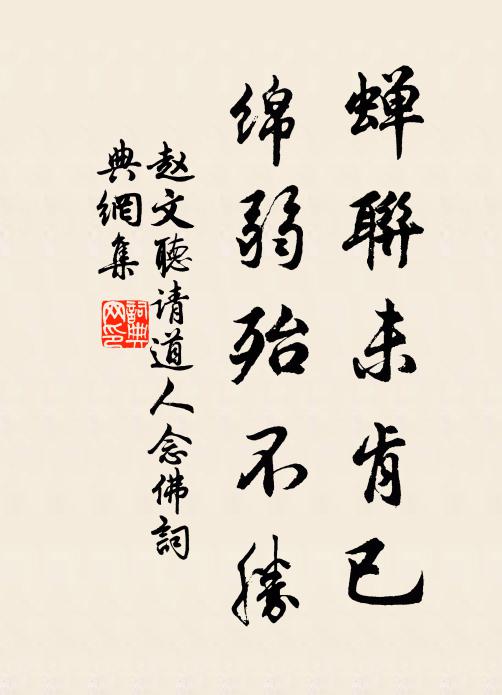 蝉聯未肯已
绵弱殆不勝
赵文聽请道人念佛詞
典網集
詞典网印